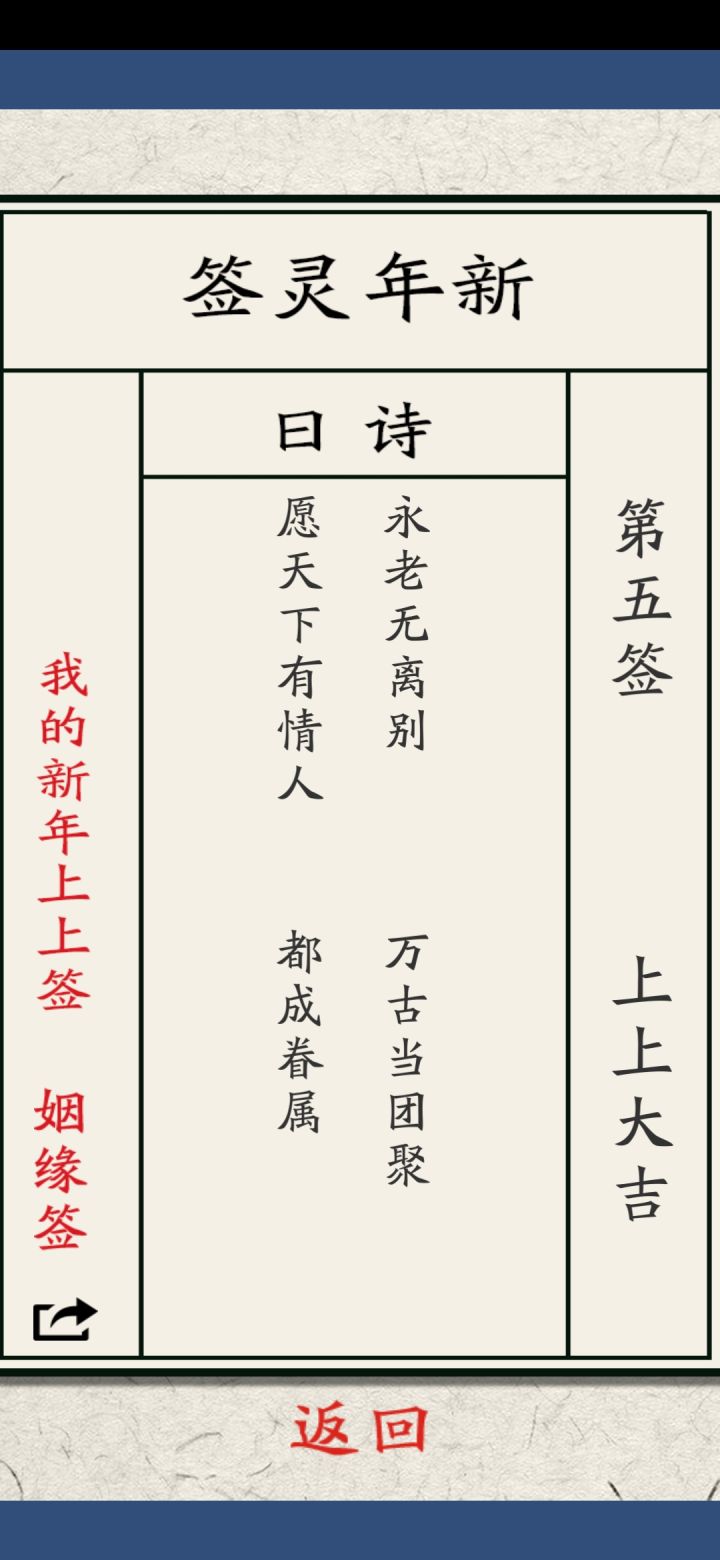 新年灵签
第五签
上上大吉
诗曰
永老无离别
万古当团聚
愿天下有情人
都成眷属
我的新年上上签
姻缘签
返回